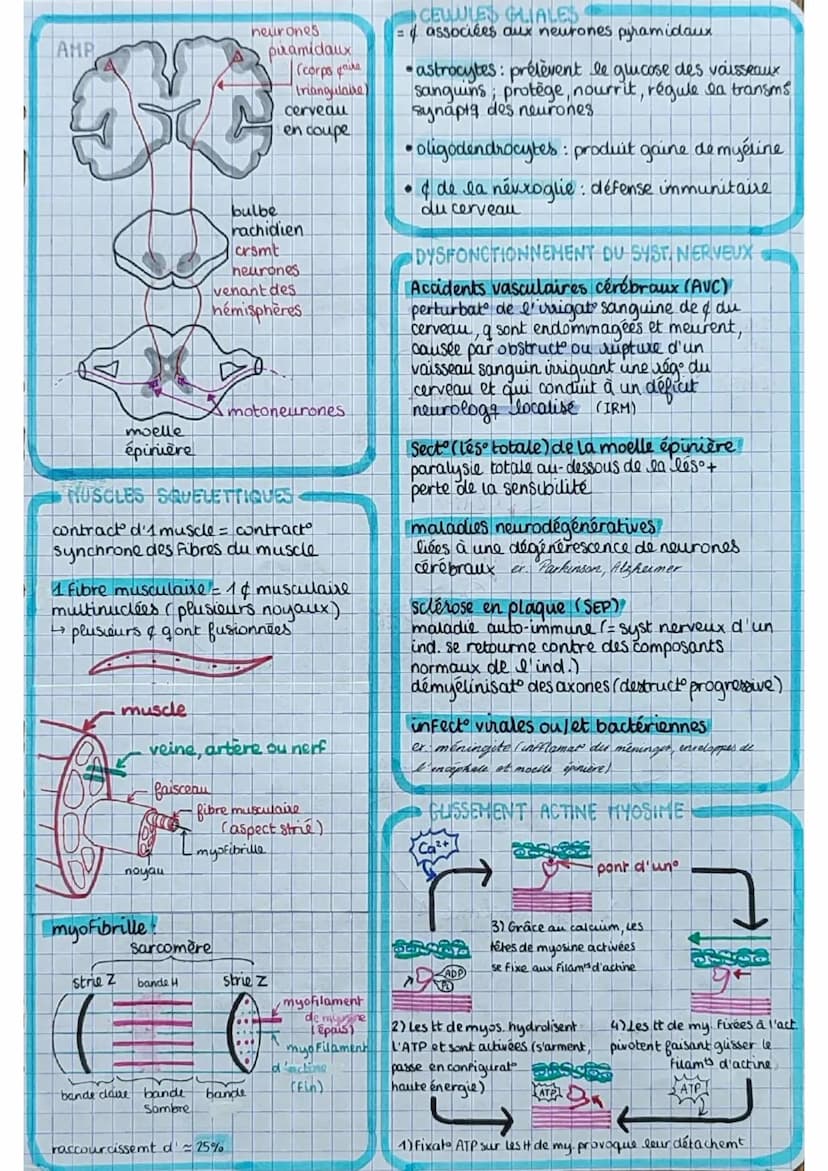 AMP
neurones
piramidaux
(corps ¢aire
triangulaire)
cerveau
en coupe
bulbe
rachidien
crsmt
neurones
venant des
hémisphères
motoneurones
moelle
épinière
MUSCLES SQUELETTIQUES
contract° d'1 muscle = contract°
synchrone des fibres du muscle
1 fibre musculaire = 1 ¢ musculaire
multinucléés (plusieurs noyaux)
↳ plusieurs ¢ qont fusionnées
muscle
veine, artère ou nerf
faisceau
fibre musculaire
(aspect strié)
myofibrille
noyau
myofibrille:
sarcomère
strie Z bande H strie Z
myofilament
de myosine
(épais)
myofilament
d'actine
(fin)
bande claire bande
sombre bande
raccourcissemt d' ≈ 25%
CELLULES GLIALES
= ¢ associées aux neurones pyramidaux
• astrocytes : prélèvent le glucose des vaisseaux
sanguins ; protège, nourrit, régule la transms
synaptq des neurones
• oligodendrocytes : produit gaine de myéline
• ¢ de la névroglie : défense immunitaire
du cerveau
DYSFONCTIONNEMENT DU SYST. NERVEUX
Accidents vasculaires cérébraux (AVC)
perturbat° de l'irrigat° sanguine de ¢ du
cerveau, q sont endommagées et meurent,
causée par obstruct° ou rupture d'un
vaisseau sanguin irriguant une rég° du
cerveau et qui conduit à un déficit
neurologq localisé (IRM)
Sect° (lés° totale) de la moelle épinière
paralysie totale au-dessous de la lés° +
perte de la sensibilité
maladies neurodégénératives
liées à une dégénérescence de neurones
cérébraux ex: Parkinson, Alzheimer
sclérose en plaque (SEP)
maladie auto-immune (= syst nerveux d'un
ind. se retourne contre des composants
normaux de l'ind.)
démyélinisat° des axones (destruct° progressive)
infect° virales ou/et bactériennes
ex: méningite (inflammat° des méninges, enveloppes de
l'encéphale et moelle épinière)
GLISSEMENT ACTINE MYOSIME
Ca²⁺
pont d'un°
3) Grâce au calcium, les
têtes de myosine activées
se fixe aux filamts d'actine
ADP
Pi
2) Les tt de myos. hydrolisent
L'ATP et sont activées (s'arment,
passe en configurat°
haute énergie)
4) Les tt de my. fixées à l'act
pivotent faisant glisser le
filamts d'actine
ATP
ATP
1) Fixat° ATP sur les tt de my. provoque leur détachemt